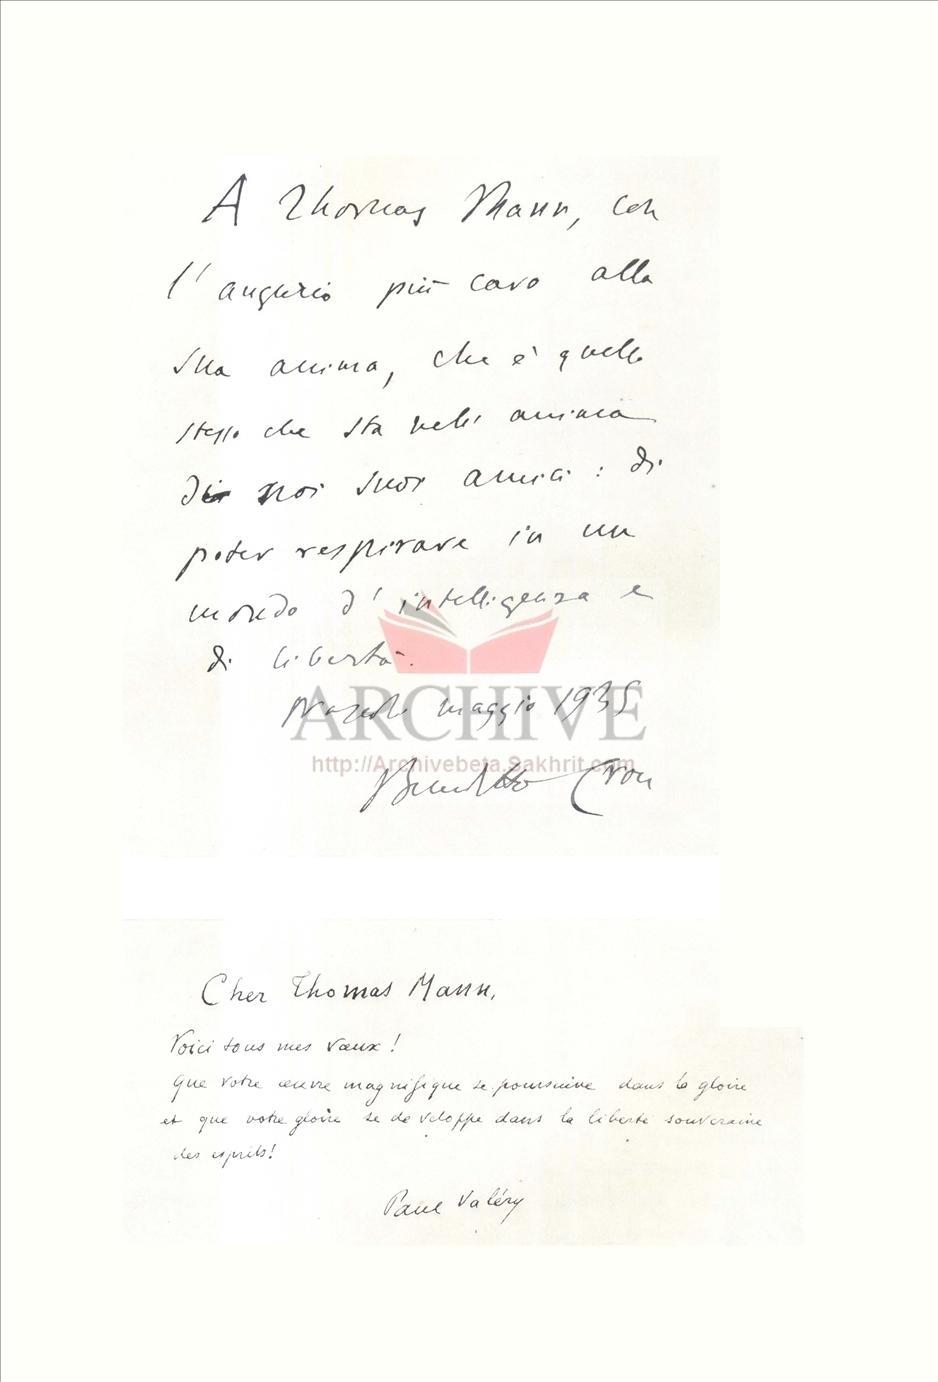 A Thomas Mann, con
l'augurio più caro alla
sua anima, che è quello
stesso che sta nell' anima
di noi suoi amici: di
poter respirare in un
mondo d'intelligenza e
di libertà.
ARCHIVE
Napoli maggio 1935
http://Archivebeta.Sakhrit.com
Benedetto Croce
Cher Thomas Mann,
Voici tous mes vœux!
Que votre œuvre magnifique se poursuive dans la gloire
et que votre gloire se developpe dans la liberté souveraine
des esprits!
Paul Valéry